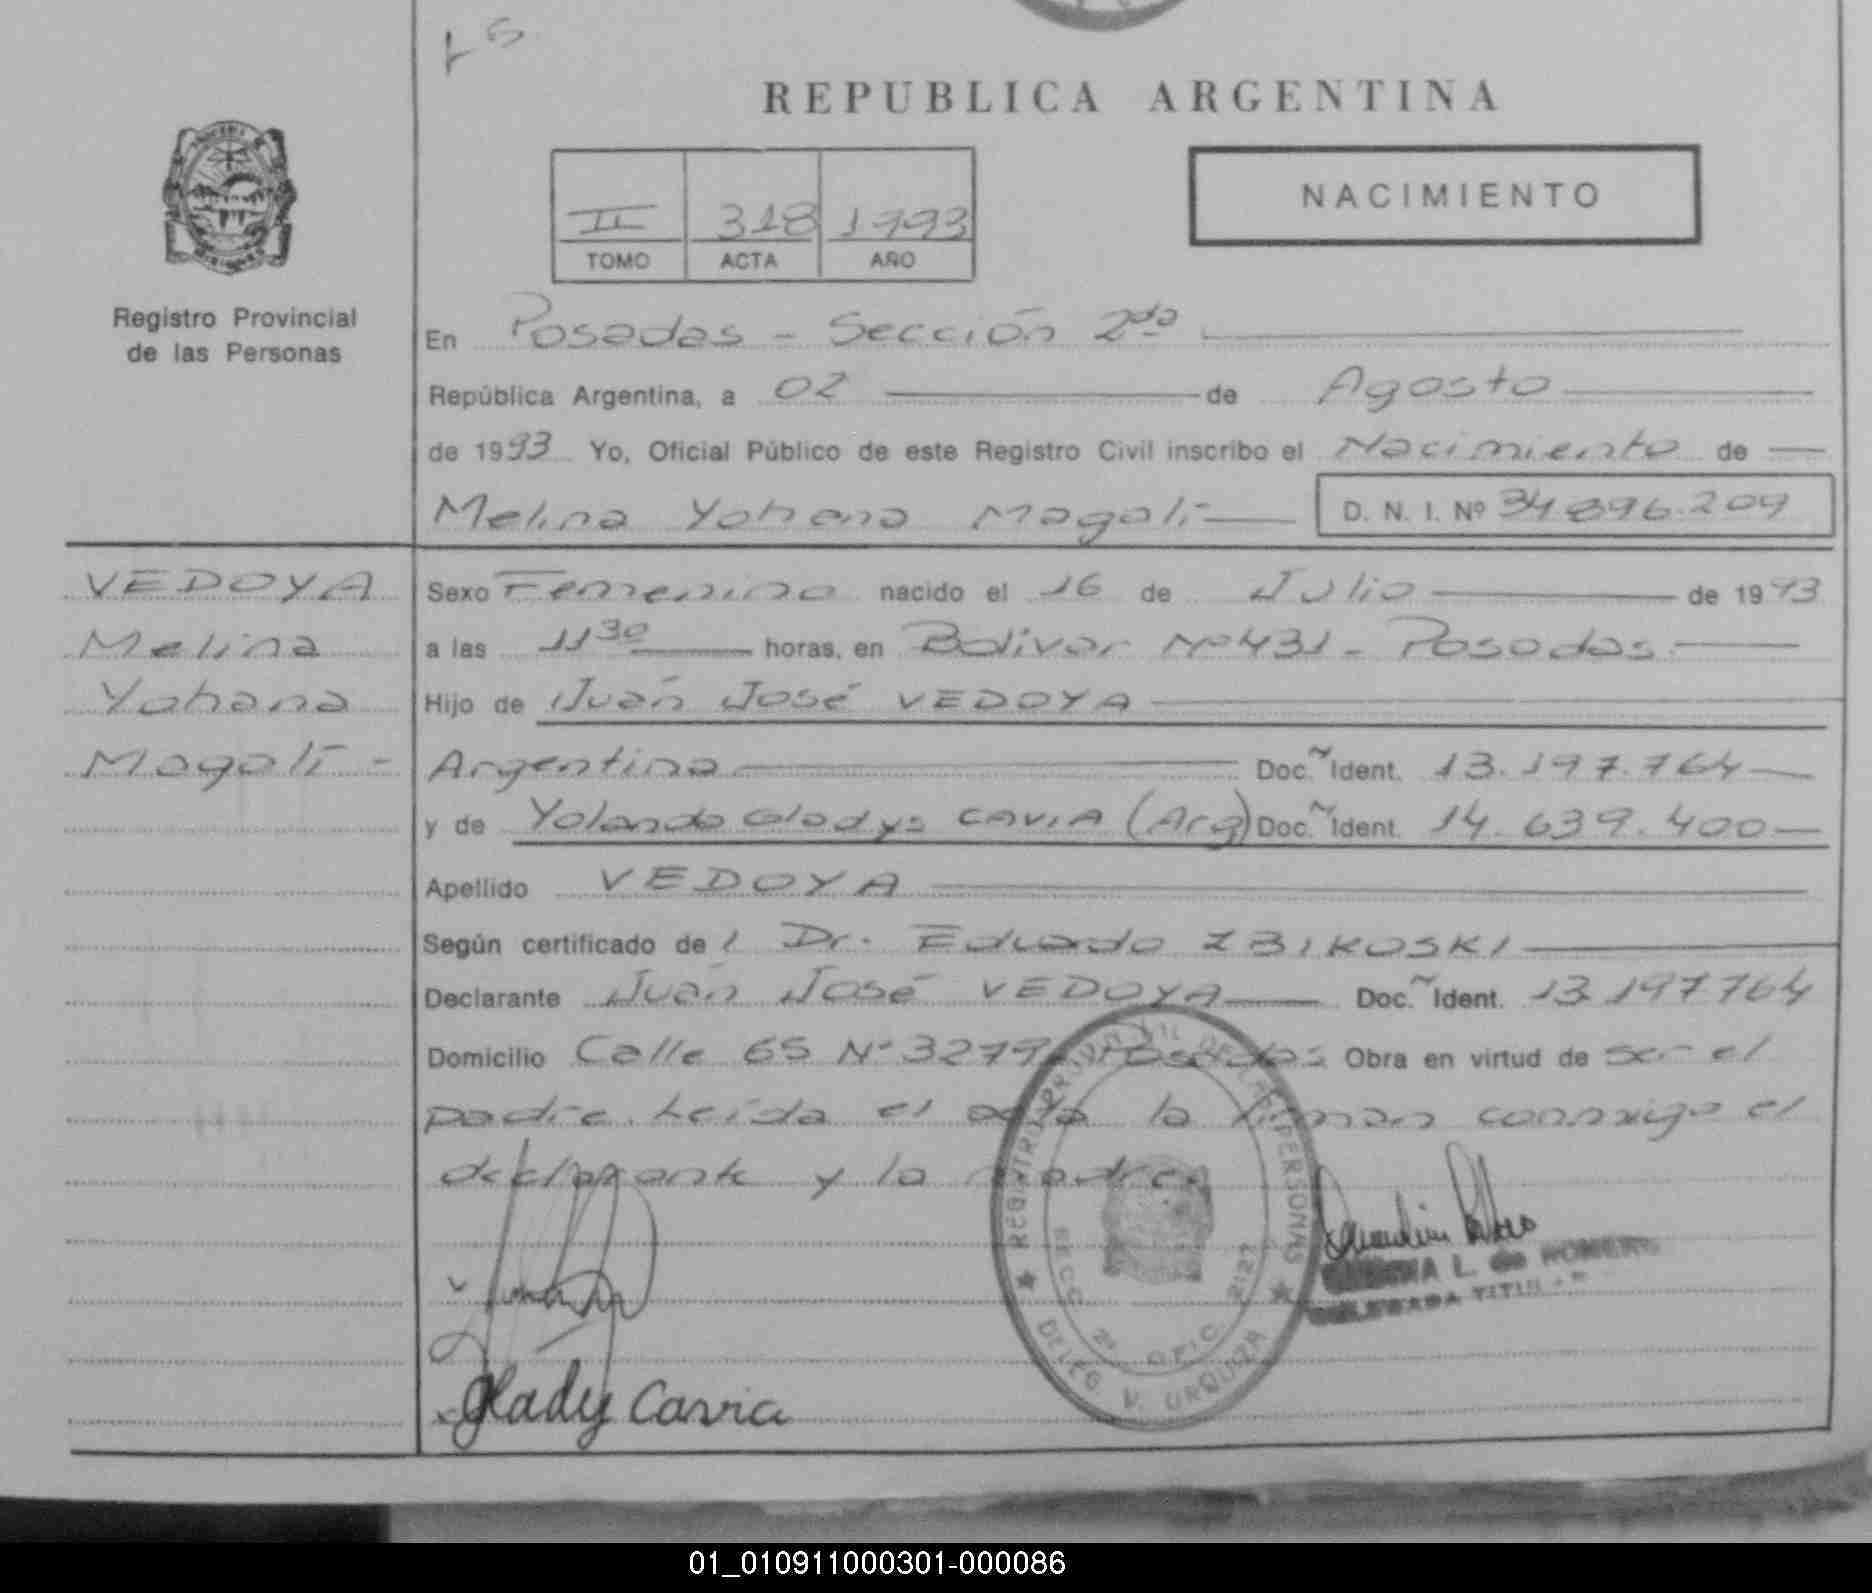 REPUBLICA ARGENTINA
NACIMIENTO
II 318 1993
TOMO ACTA AÑO
Registro Provincial
de las Personas
En Posadas - Sección 2da
República Argentina, a 02 de Agosto
de 1993 Yo, Oficial Público de este Registro Civil inscribo el Nacimiento de
Melina Yohana Magalí D. N. I. Nº 34.896.209
VEDOYA
Melina
Yohana
Magalí -
Sexo Femenino nacido el 16 de Julio de 1993
a las 11 30 horas, en Bolivar Nº 431 - Posadas
Hijo de Juan José VEDOYA
Argentina Doc. Ident. 13.197.764
y de Yolanda Gladys CAVIA (Arg) Doc. Ident. 14.639.400
Apellido VEDOYA
Según certificado del Dr. Eduardo ZBIKOSKI
Declarante Juan José VEDOYA Doc. Ident. 13.197764
Domicilio Calle 65 Nº 3279 Posadas Obra en virtud de ser el
padre. Leída el acta la firman conmigo el
declarante y la madre.
Glady Cavia
REGISTRO PROVINCIAL DE LAS PERSONAS
SECC. 2ª OFIC. 2127
DELEG. V. URQUIZA
L. de ROMERO
DELEGADA TITULAR
01_010911000301-000086